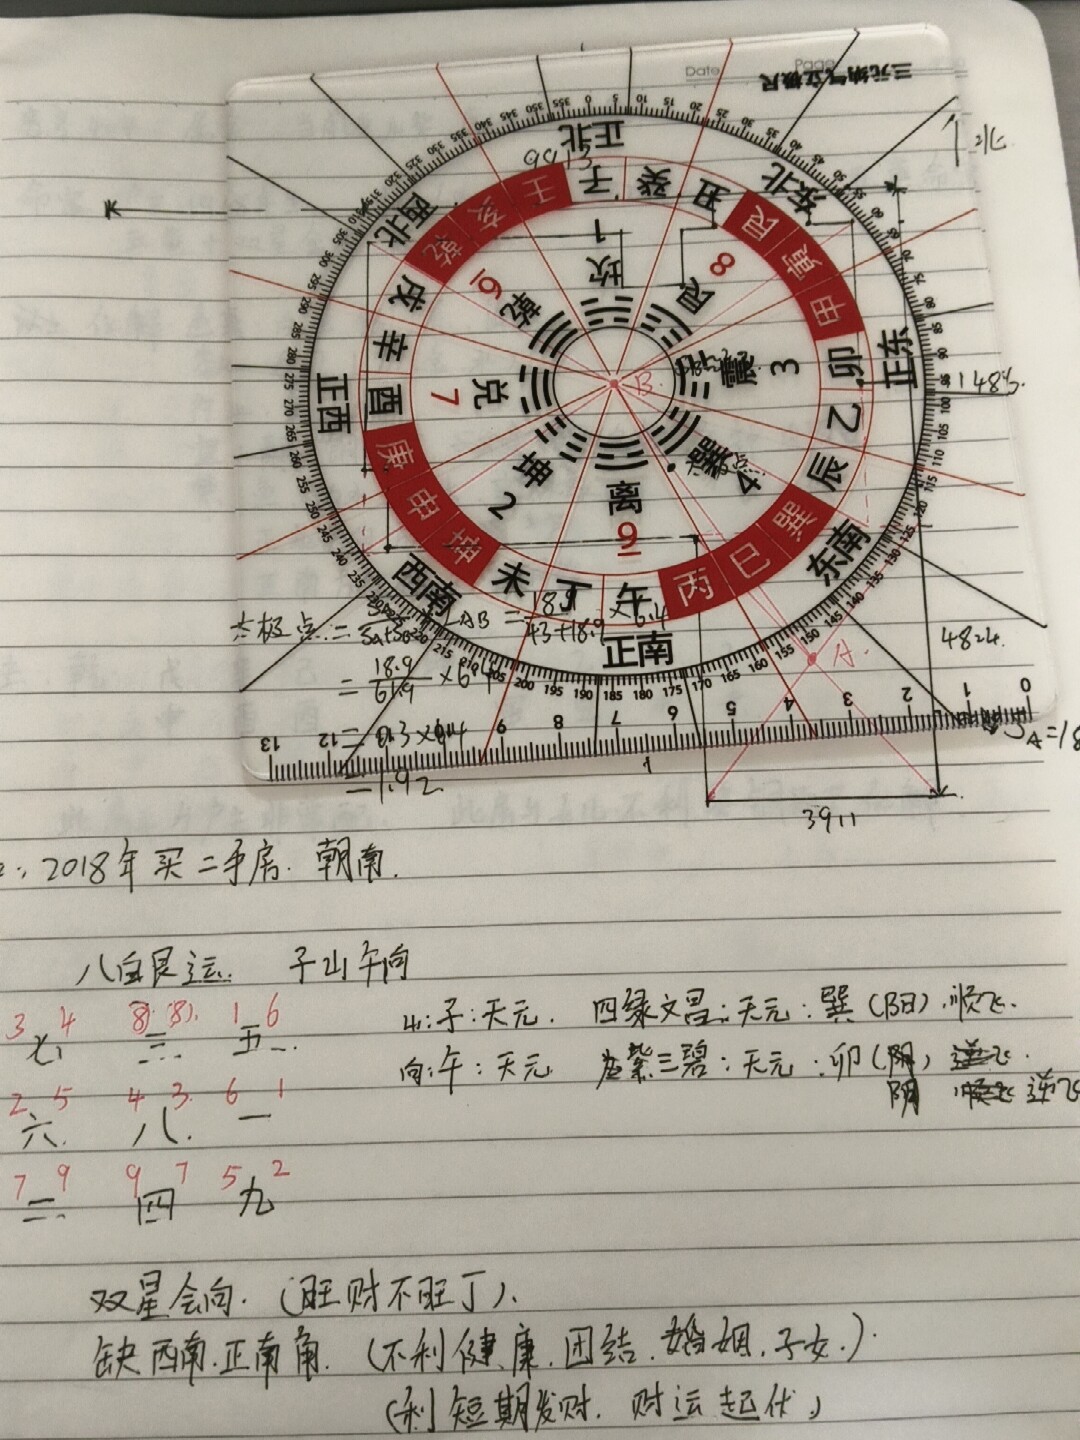 Date Page 三元纳气立极尺
↑北
9913
正北
东北
正东
东南
正南
西南
正西
西北
壬 子 癸 丑 艮 寅 甲 卯 乙 辰 巽 巳 丙 午 丁 未 坤 申 庚 酉 辛 戌 乾 亥
坎 1
艮 8
震 3
巽 4
离 9
坤 2
兑 7
乾 6
B
A
4824
3911
0 1 2 3 4 5 6 7 8 9 12 13
太极点 = AB = 18.9 / 43+18.9 × 6.4
= 18.9 / 61.9 × 6.4
= 0.3×6.4
= 1.92
2018年买二手房. 朝南.
八白艮运. 子山午向
3 4 8 8 1 6
七 三 五
山:子:天元. 四绿文昌:天元:巽(阳).顺飞.
向:午:天元 三碧:天元:卯(阴) 逆飞.
阴 顺飞 逆飞
2 5 4 3 6 1
六 八 一
7 9 9 7 5 2
二 四 九
双星会向. (旺财不旺丁).
缺西南.正南角. (不利健康.团结.婚姻.子女.)
(利短期发财. 财运起伏)